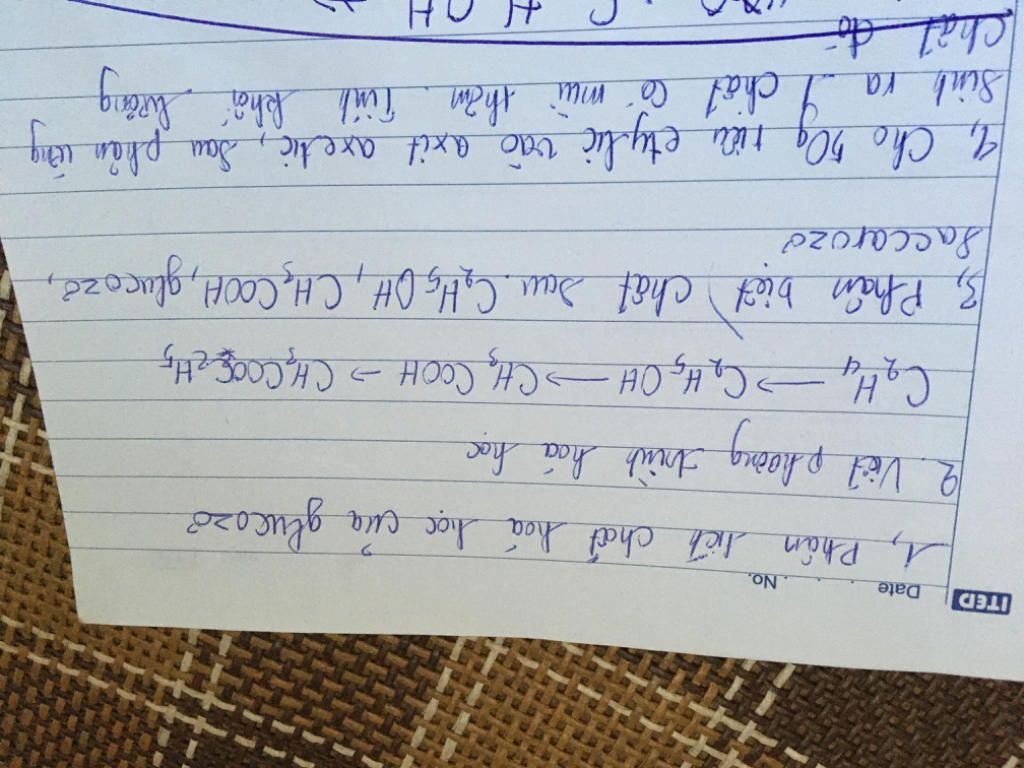 ITEP Date . . . . . No.
1, Phân tích chất hoá học của glucozơ
2. Viết phương trình hoá học
C2H4 → C2H5OH → CH3COOH → CH3COOC2H5
3, Phân biệt chất sau. C2H5OH, CH3COOH, glucozơ,
Saccarozơ
4, Cho 50g rượu etylic vào axit axetic, sau phản ứng
sinh ra 1 chất có mùi thơm. Tính khối lượng
chất đó